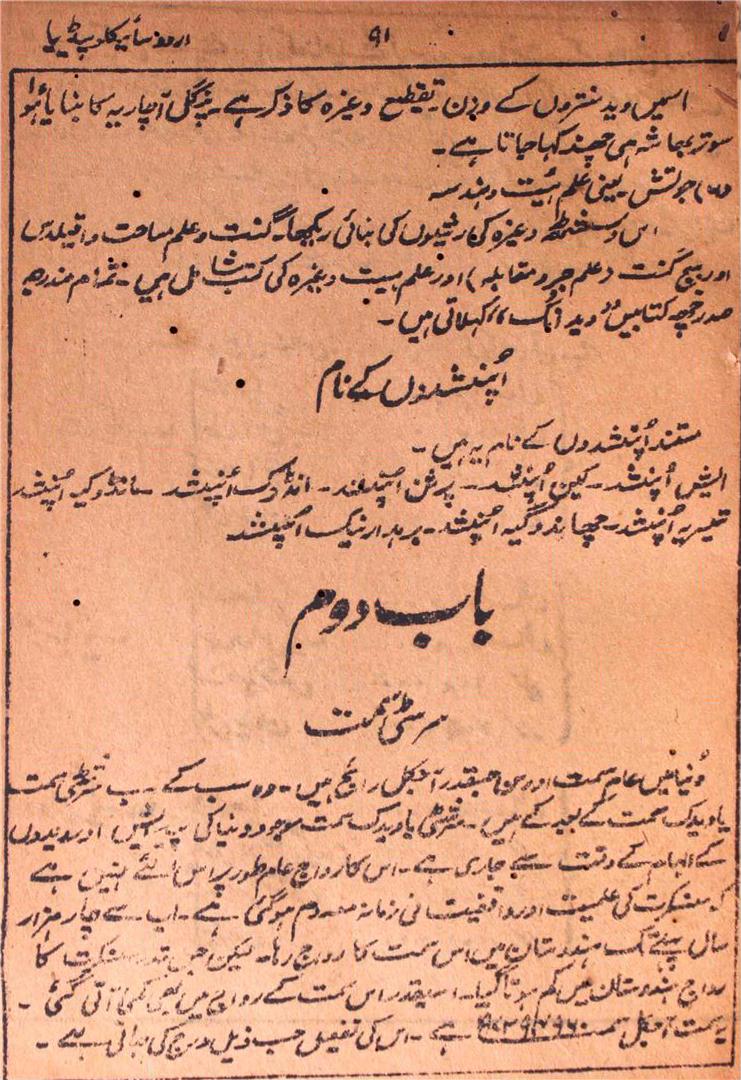 اردو سائیکلو پیڈیا
۹۱
اسمیں وید منتروں کے وزن۔ تقطیع وغیرہ کا ذکر ہے۔ پنگل آچاریہ کا بنایا ہوا
سوتر بھاشہ ہی چھند کہا جاتا ہے۔
جوتش۔ یعنی علم ہئیت و ہندسہ
اس وغیرہ کی کی بنائی ریکھا۔ گنت و علم مساحت و اقلیدس
اور بیج گنت (علم جبر و مقابلہ) اور علم ہیت وغیرہ کی کتب شامل ہیں۔ تمام مندرجہ
صدر چھ کتابیں "وید انگ" کہلاتی ہیں۔
اُپنشدوں کے نام
مستند اُپنشدوں کے نام یہ ہیں۔
ایش اُپنشد۔ کین اُپنشد۔ پرشن اُپنشد۔ انڈوک اُپنیشد۔ مانڈوکیہ اُپنیشد
تیسریہ اُپنشد۔ چھاندوگیہ اُپنشد۔ برہدارنیک اُپنیشد
باب دوم
سرسٹی سمت
دُنیا میں عام سمت اور سن جسقدر آجکل رائج ہیں۔ وہ سب کے سب سمت
یا ویدک سمت کے بعد کے ہیں۔ یا ویدک سمت موجودہ دنیا کی پیدائش اور ویدوں
کے الہام کے وقت سے جاری ہے۔ اس کا رواج عام طور پر اس لئے نہیں ہے
کہ سنسکرت کی علمیت اور واقفیت فی زمانہ معدوم ہوگئی ہے۔ اب سے چار ہزار
سال پہلے تک ہندوستان میں اس سمت کا رواج رہا۔ لیکن جس قدر سنسکرت کا
رواج ہندوستان میں کم ہوتا گیا۔ اسیقدر اس سمت کے رواج میں بھی کمی آتی گئی۔
یہ سمت آجکل سمت ہے۔ اس کی تفصیل حسب ذیل درج کی جاتی ہے۔